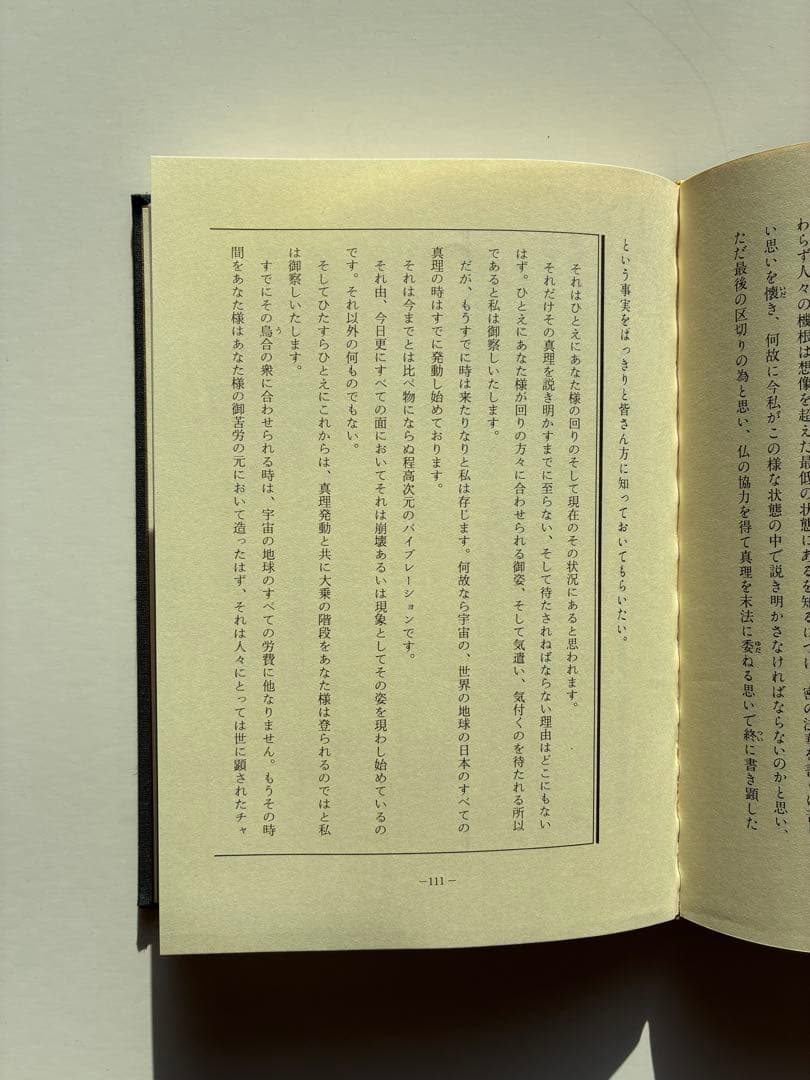 わらず人々の機根は想像を超えた最低の状態にあるを知るにつけ、密の法華を
い思いを懐き、何故に今私がこの様な状態の中で説き明かさなければならないのかと思い、
ただ最後の区切りの為と思い、仏の協力を得て真理を末法に委ねる思いで終に書き顕した
という事実をはっきりと皆さん方に知っておいてもらいたい。
それはひとえにあなた様の回りのそして現在のその状況にあると思われます。
それだけその真理を説き明かすまでに至らない、そして待たされねばならない理由はどこにもない
はず。ひとえにあなた様が回りの方々に合わせられる御姿、そして気遣い、気付くのを待たれる所以
であると私は御察しいたします。
だが、もうすでに時は来たりなりと私は存じます。何故なら宇宙の、世界の地球の日本のすべての
真理の時はすでに発動し始めております。
それは今までとは比べ物にならぬ程高次元のバイブレーションです。
それ由、今日更にすべての面においてそれは崩壊あるいは現象としてその姿を現わし始めているの
です。それ以外の何ものでもない。
そしてひたすらひとえにこれからは、真理発動と共に大乗の階段をあなた様は登られるのではと私
は御察しいたします。
すでにその烏合の衆に合わせられる時は、宇宙の地球のすべての労費に他なりません。もうその時
間をあなた様はあなた様の御苦労の元において造ったはず、それは人々にとっては世に顕されたチャ
―111―